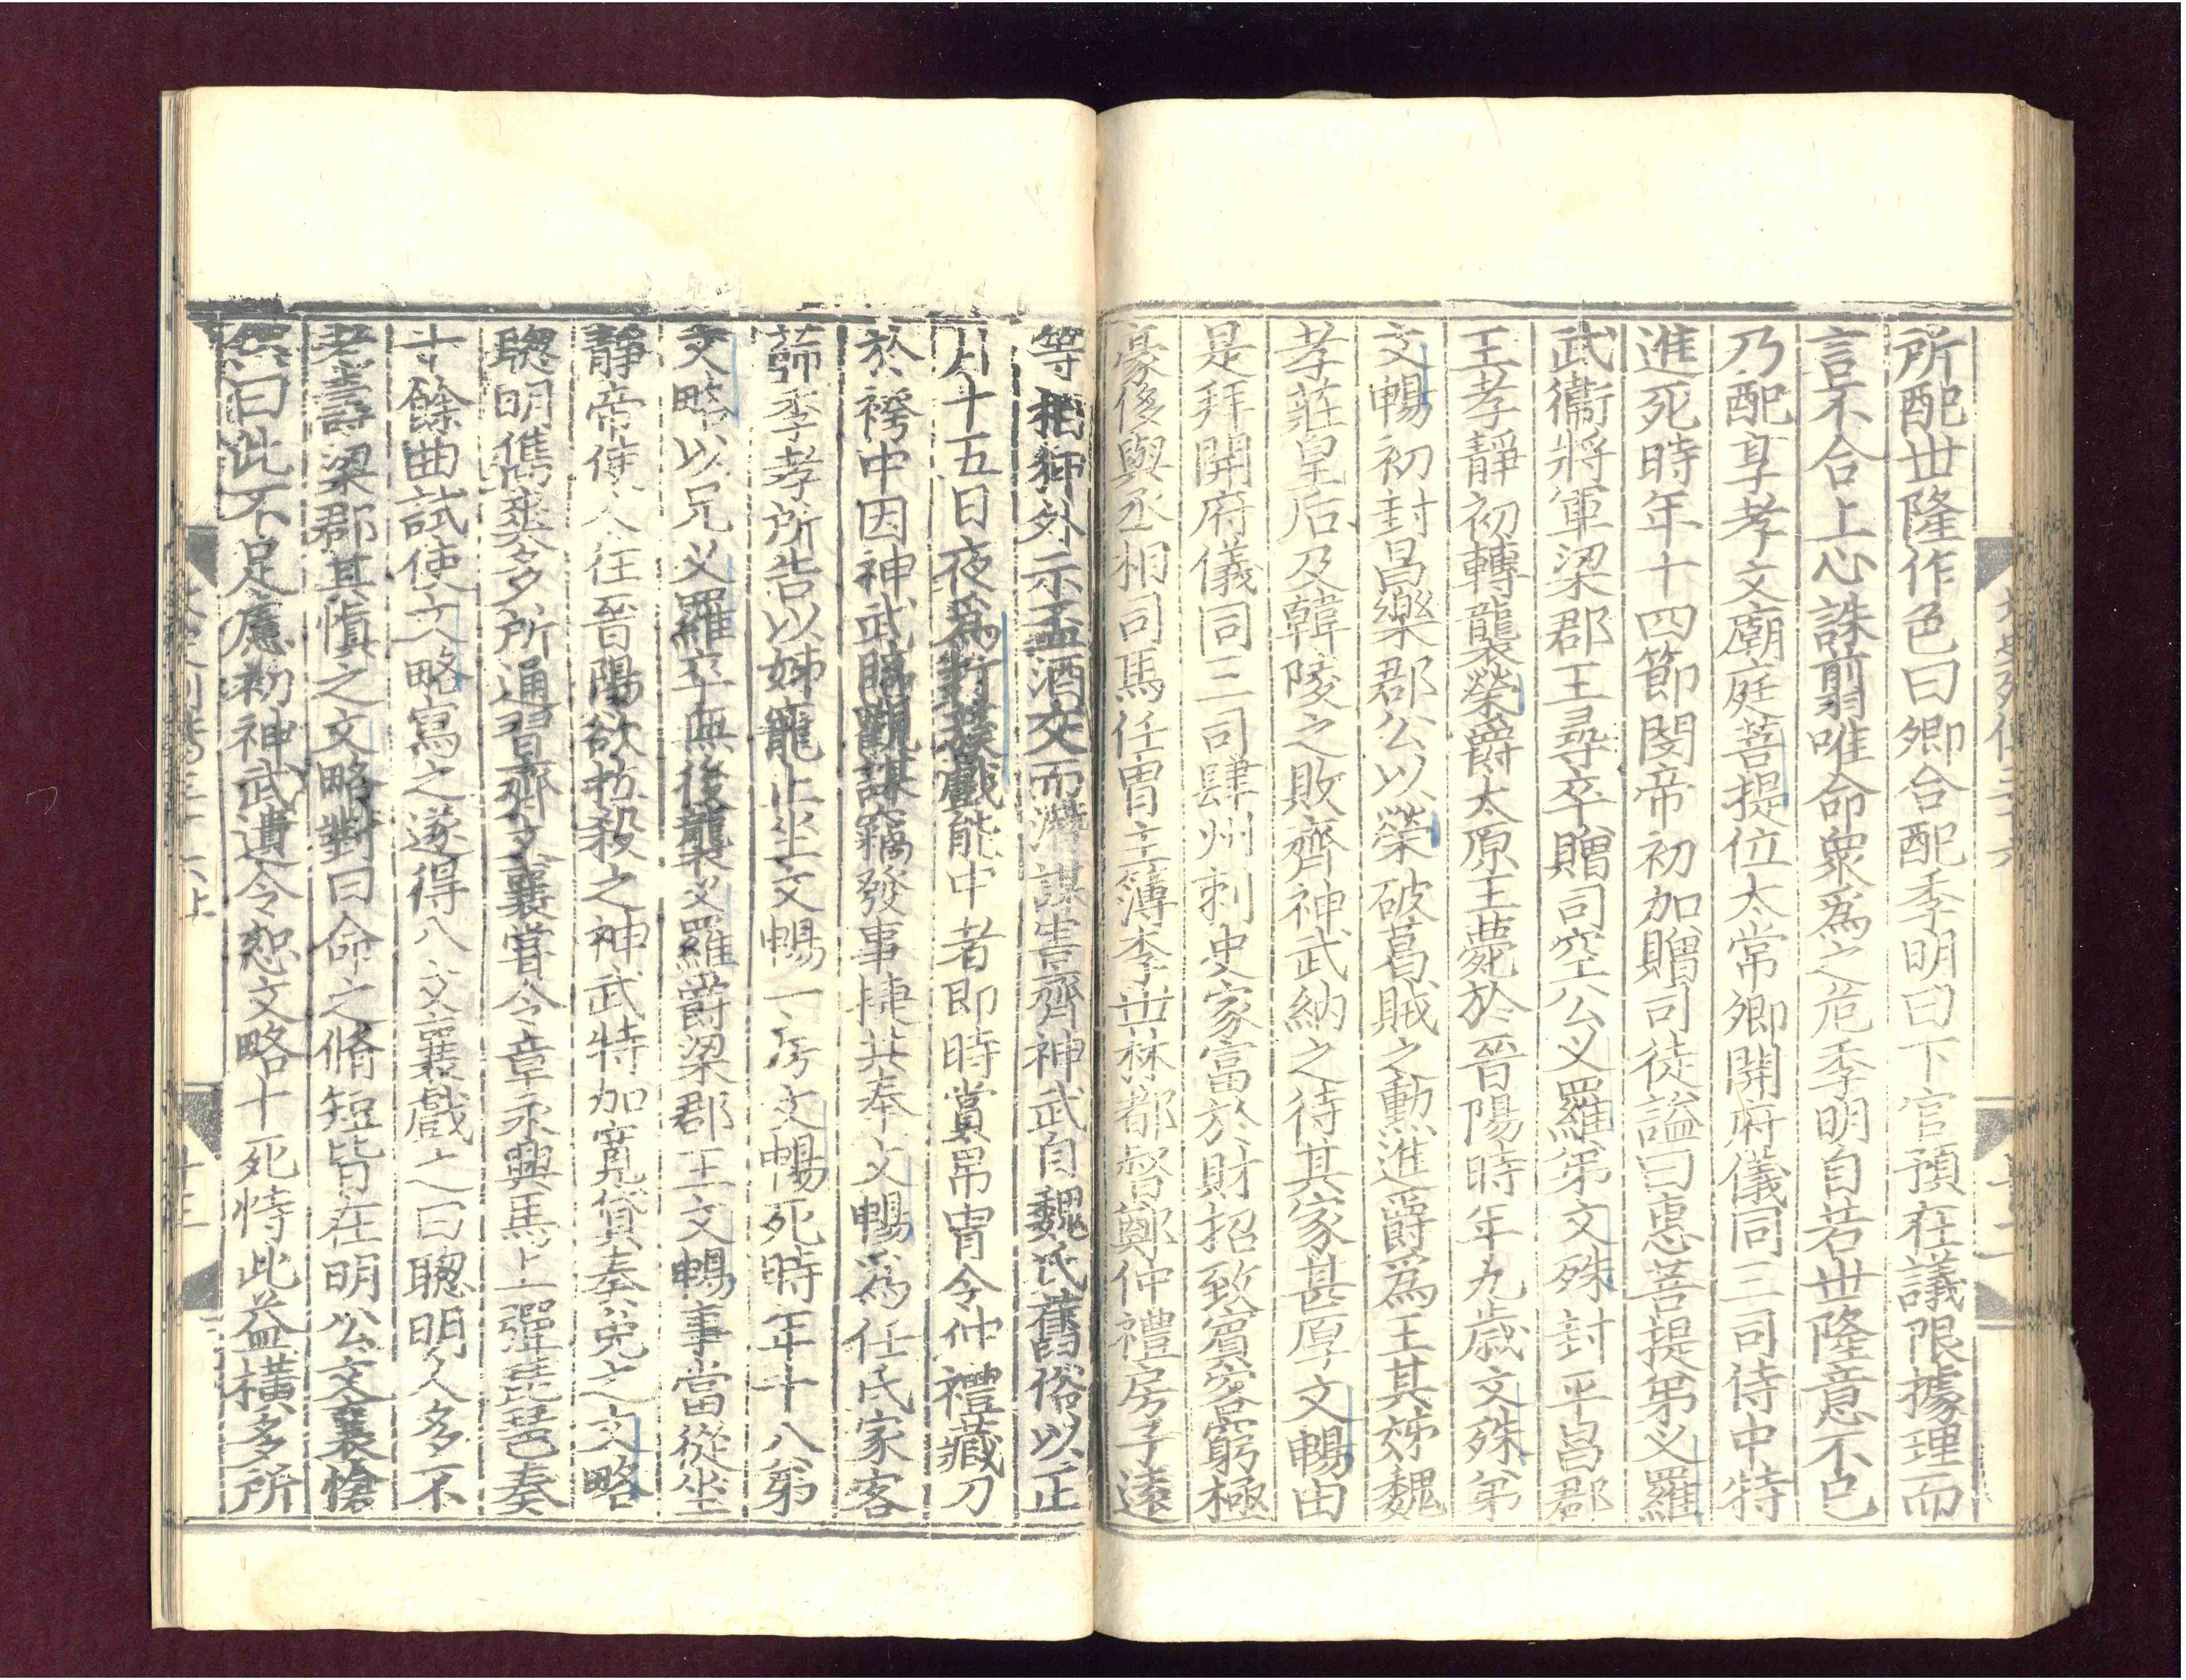 所配世隆作色曰卿合配季明曰下官預在議限據理而
言不合上心誅翦唯命衆爲之危季明自若世隆意不已
乃配享孝文廟庭菩提位太常卿開府儀同三司侍中特
進死時年十四節閔帝初加贈司徒謚曰惠菩提弟义羅
武衞將軍梁郡王尋卒贈司空公义羅弟文殊封平昌郡
王孝靜初轉襲榮爵太原王薨於晉陽時年九歲文殊弟
文暢初封昌樂郡公以榮破葛賊之勲進爵爲王其姊魏
孝莊皇后及韓陵之敗齊神武納之待其家甚厚文暢由
是拜開府儀同三司肆州刺史家富於財招致賓客窮極
豪侈與丞相司馬任胄主簿李世林都督鄭仲禮房子遠
等相狎外示盃酒交而潛謀害齊神武自魏氏舊俗以正
月十五日夜爲打蔟戲能中者即時賞帛胄令仲禮藏刀
於袴中因神武臨觀謀竊發事捷共奉文暢爲任氏家客
薛季孝所告以姊寵止坐文暢一房文暢死時年十八弟
文略以兄义羅卒無後襲义羅爵梁郡王文暢事當從坐
靜帝使人往晉陽欲拉殺之神武特加寬貸奏免之文略
聦明儁爽多所通習齊文襄甞令章永興馬上彈琵琶奏
十餘曲試使文略寫之遂得八文襄戲之曰聦明人多不
老壽梁郡其慎之文略對曰命之脩短皆在明公文襄愴
然曰此不足慮初神武遺令恕文略十死恃此益橫多所